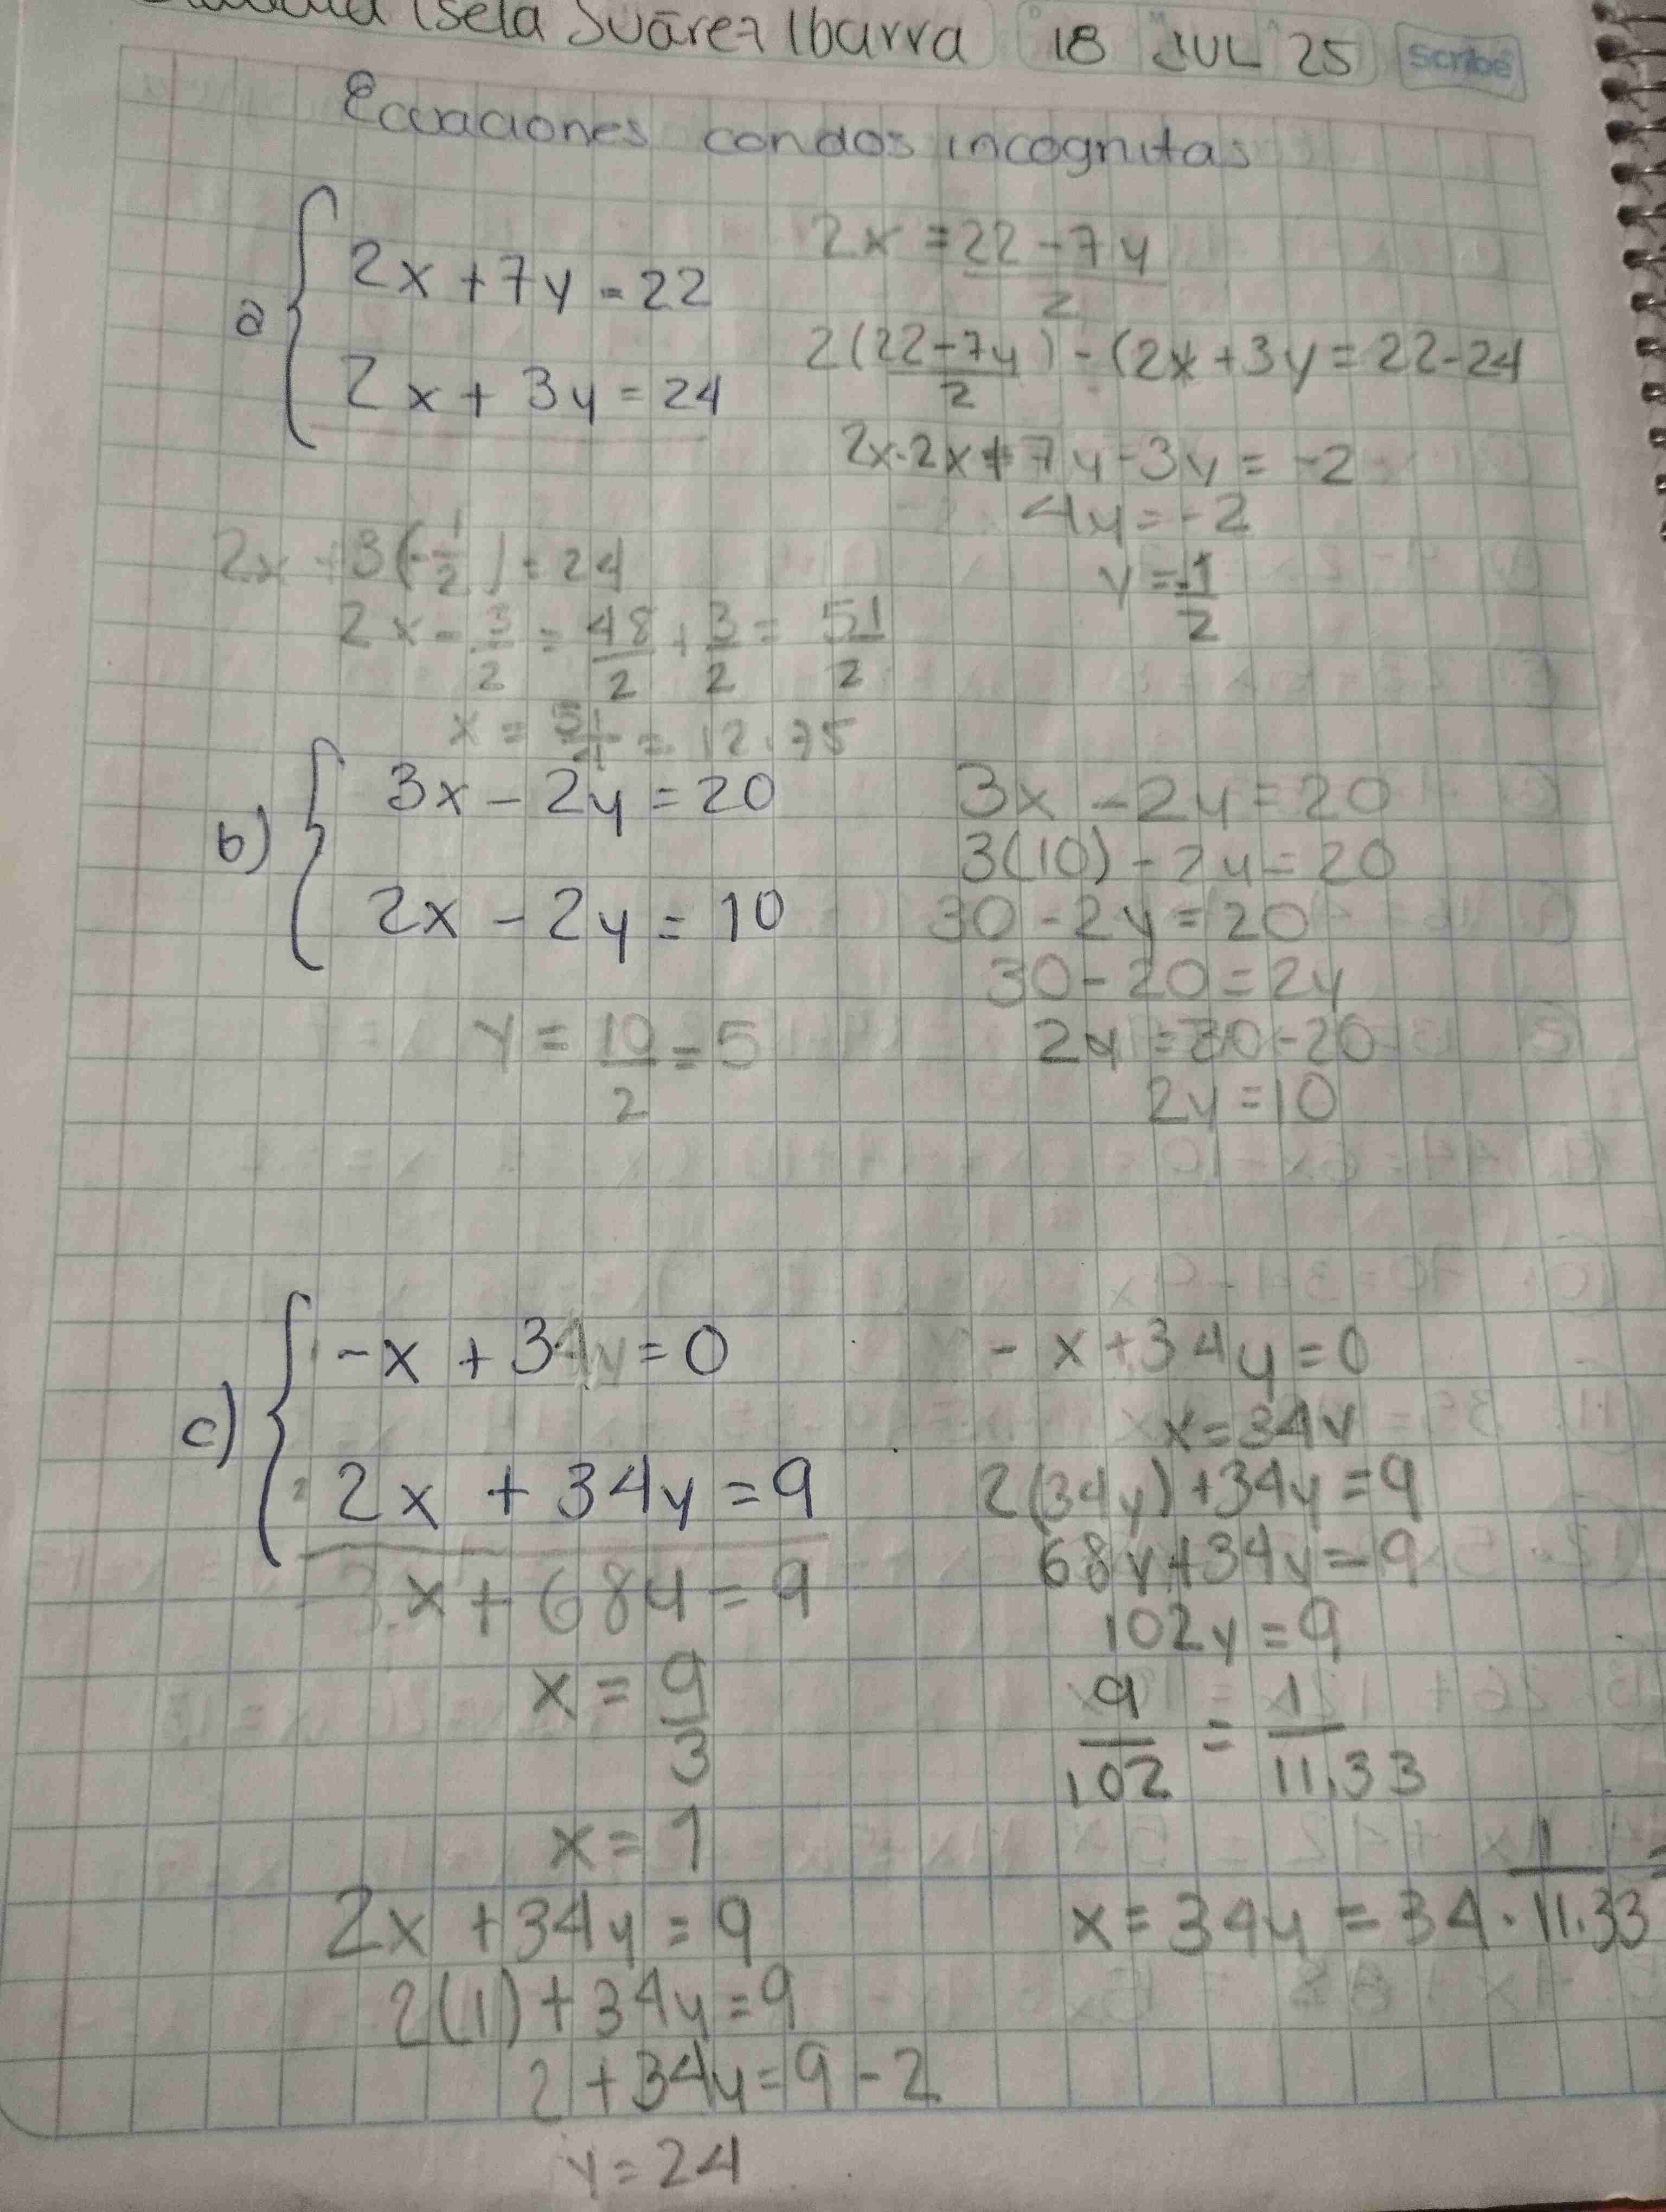 Isela Suárez Ibarra 18 JUL 25 Scribe
Ecuaciones con dos incognitas
a { 2x + 7y = 22
2x + 3y = 24
2x = 22 - 7y / 2
2(22 - 7y / 2) - (2x + 3y = 22 - 24
2x - 2x + 7y - 3y = -2
4y = -2
y = -1/2
2x + 3(-1/2) = 24
2x - 3/2 = 48/2 + 3/2 = 51/2
x = 51/4 = 12.75
b) { 3x - 2y = 20
2x - 2y = 10
y = 10/2 = 5
3x - 2y = 20
3(10) - 2y = 20
30 - 2y = 20
30 - 20 = 2y
2y = 30 - 20
2y = 10
c) { -x + 34y = 0
2x + 34y = 9
3x + 68y = 9
x = 9/3
x = 1
2x + 34y = 9
2(1) + 34y = 9
2 + 34y = 9 - 2
y = 24
- x + 34y = 0
x = 34y
2(34y) + 34y = 9
68y + 34y = 9
102y = 9
9/102 = 1/11.33
x = 34y = 34 · 1/11.33 =